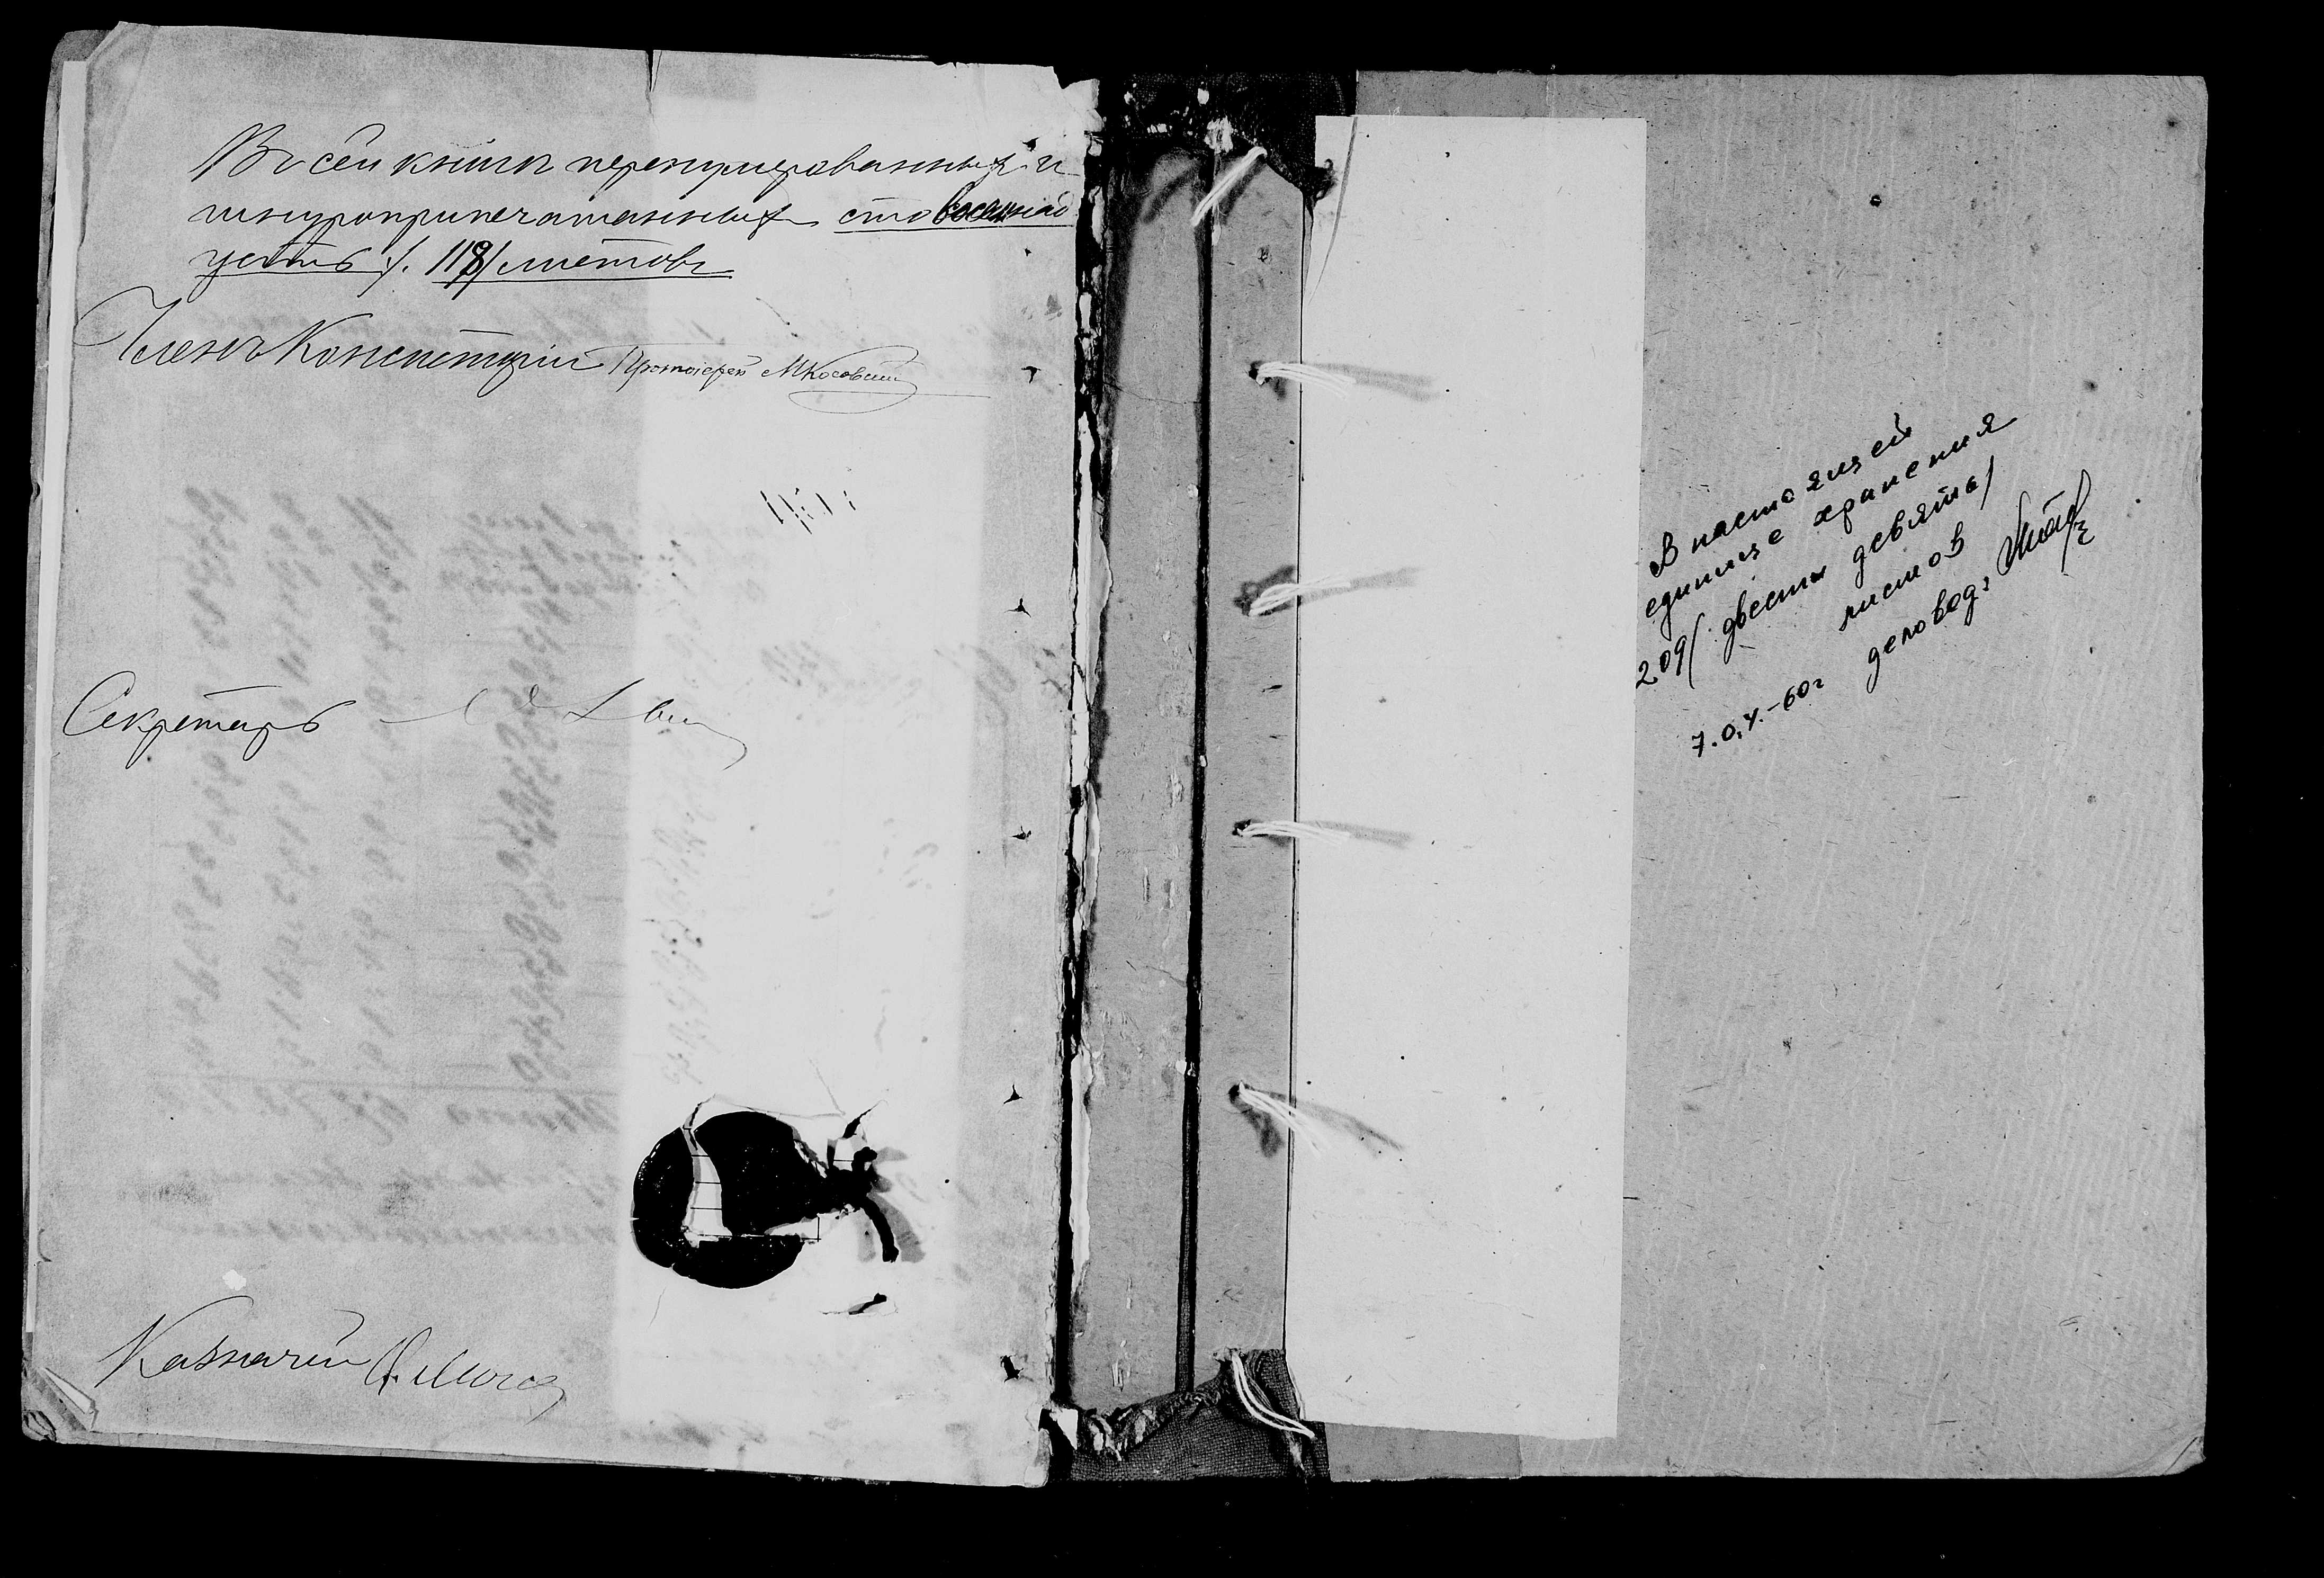 Въ сей книгѣ перенумерованныхъ и
шнуроприпечатанныхъ сто восемнад
цать /. 118/ листовъ
Членъ Консисторіи Протоіерей М Косовскій
Секретарь
Казначей
В настоящей
единице хранения
209/ двести девять/
листов
7.04.-60г деловод: